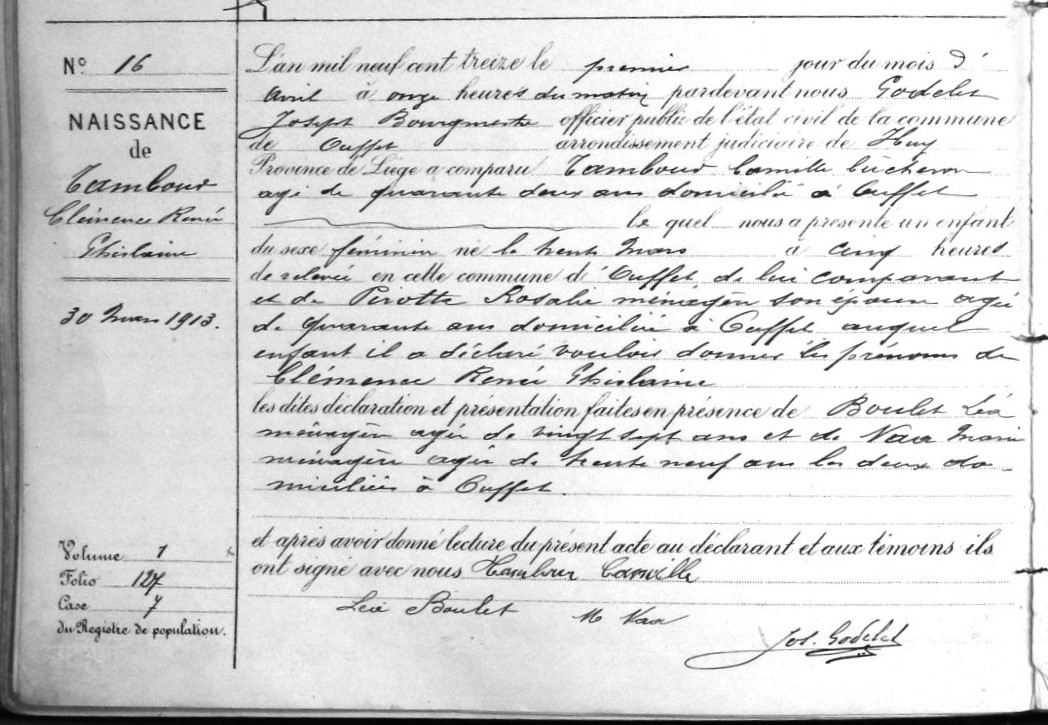 Nº 16
NAISSANCE
de
Tambour
Clémence Renée
Ghislaine
30 Mars 1913.
Volume 1
Folio 127
Case 7
du Registre de population.
L'an mil neuf cent treize le premier jour du mois d'
Avril à onze heures du matin pardevant nous Godelet
Joseph Bourgmestre officier public de l'état civil de la commune
de Ouffet arrondissement judiciaire de Huy
Province de Liège a comparu Tambour Camille bûcheron
agé de quarante deux ans domicilié à Ouffet
le quel nous a présenté un enfant
du sexe féminin né le trente Mars à cinq heures
de relevée en cette commune d'Ouffet, de lui comparant
et de Pirotte Rosalie ménagère son épouse agée
de quarante ans domiciliée à Ouffet auquel
enfant il a déclaré vouloir donner les prénoms de
Clémence Renée Ghislaine
les dites déclaration et présentation faites en présence de Boulet Léa
ménagère agée de vingt sept ans et de Naa Marie
ménagère agée de trente neuf ans les deux do-
miciliées à Ouffet.
et après avoir donné lecture du présent acte au déclarant et aux témoins ils
ont signé avec nous Tambour Camille
Léa Boulet M Naa
Jos. Godelet